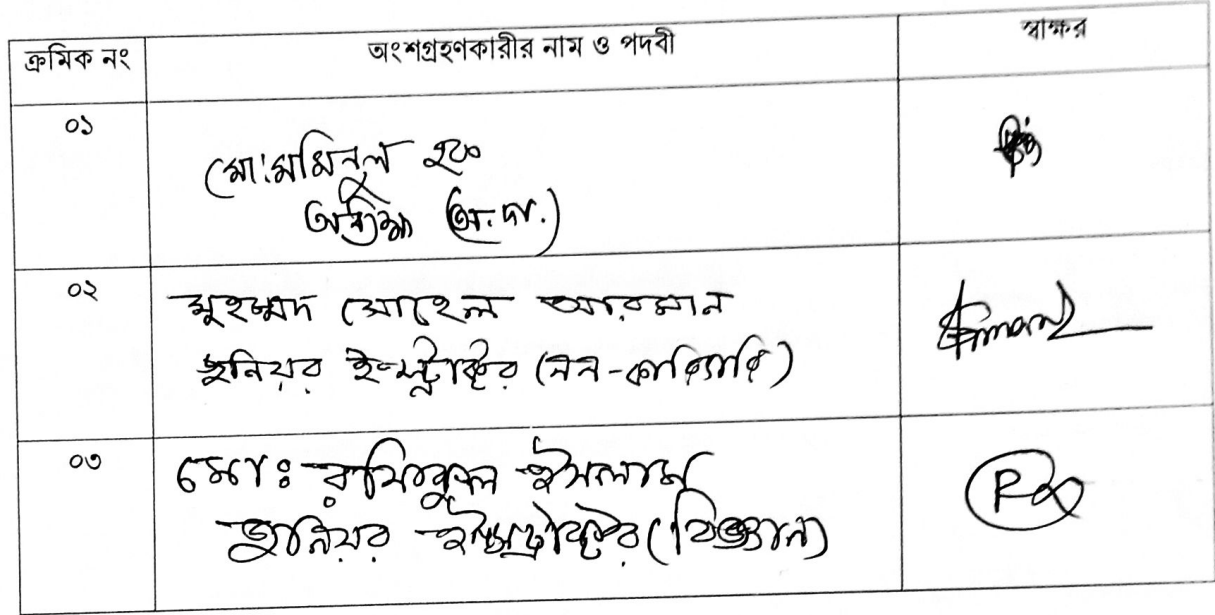 ক্রমিক নং অংশগ্রহণকারীর নাম ও পদবী স্বাক্ষর
০১
মো: মমিনুল হক
অধ্যক্ষ (অ.দা.)
০২
মুহম্মদ সোহেল আরমান
জুনিয়র ইন্সট্রাক্টর (নন-কারিগরি)
০৩
মোঃ রফিকুল ইসলাম
জুনিয়র ইন্সট্রাক্টর (বিজ্ঞান)